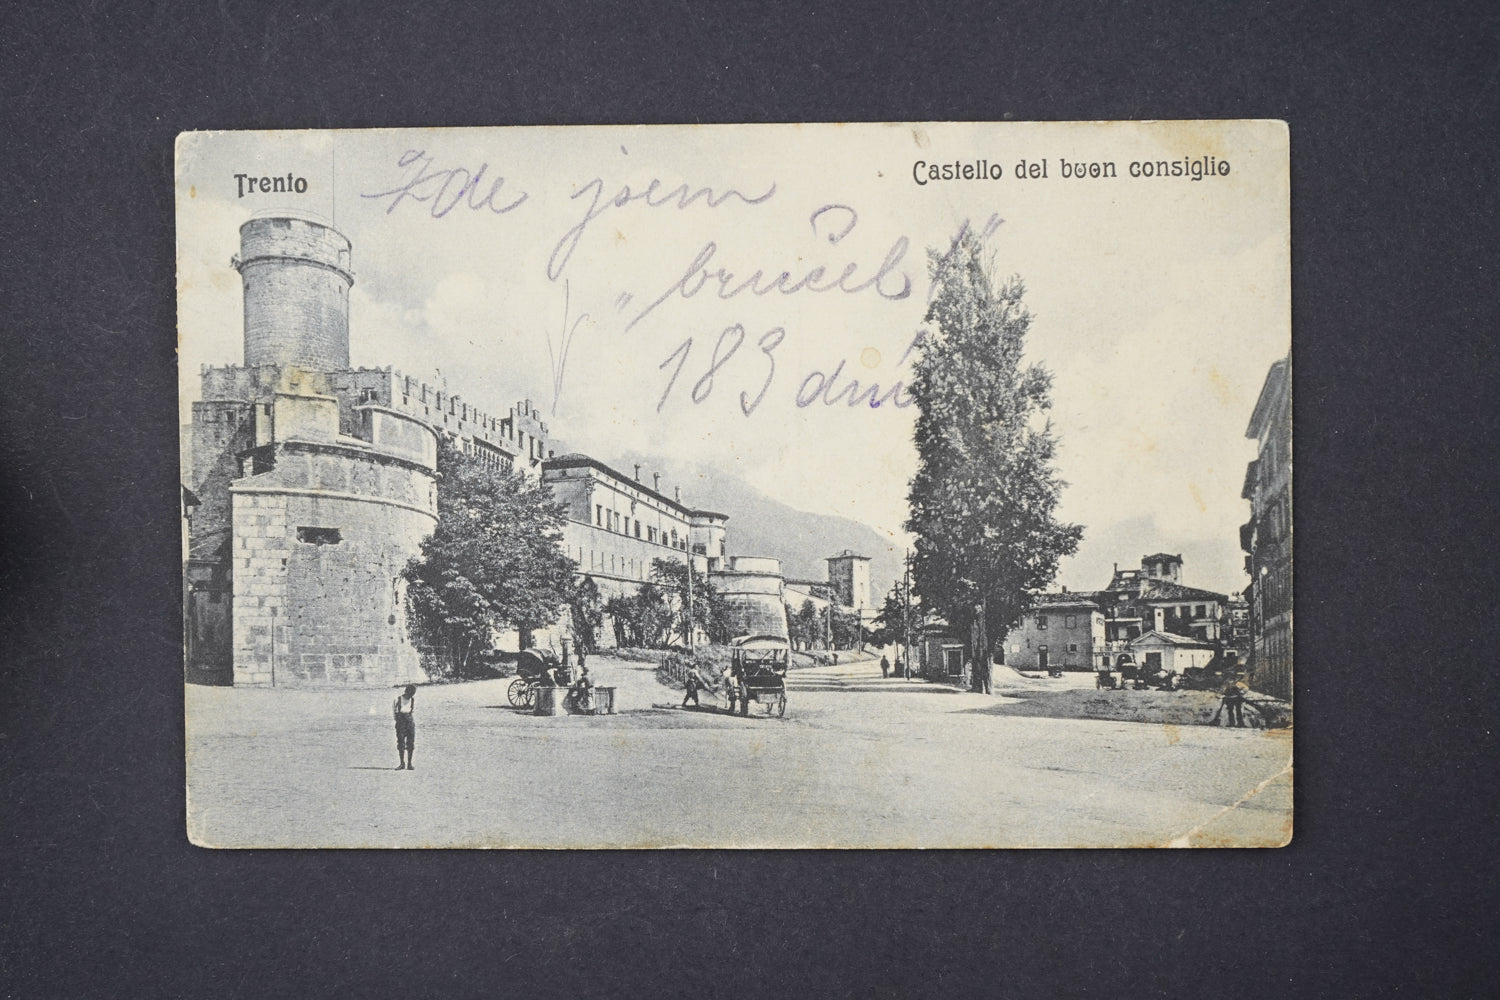 Trento
Castello del buon consiglio
Zde jsem
„bručel“
183 dní